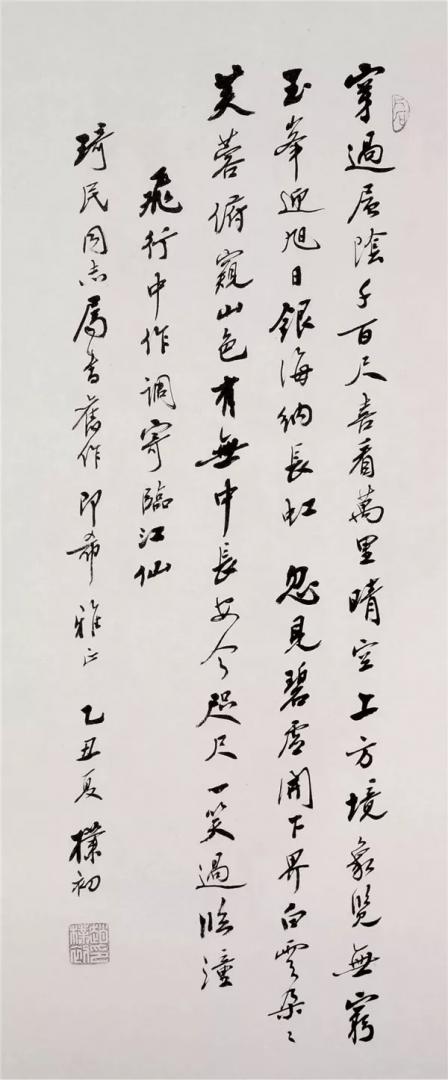 穿過層陰千百尺喜看萬里晴空上方境象覽無窮
玉峯迎旭日銀海納長虹 忽見碧虛開下界白雲朵〻
芙蓉俯窺山色有無中長安今咫尺一笑過臨潼
飛行中作調寄臨江仙
琦民同志屬書舊作即希雅正 乙丑夏 樸初